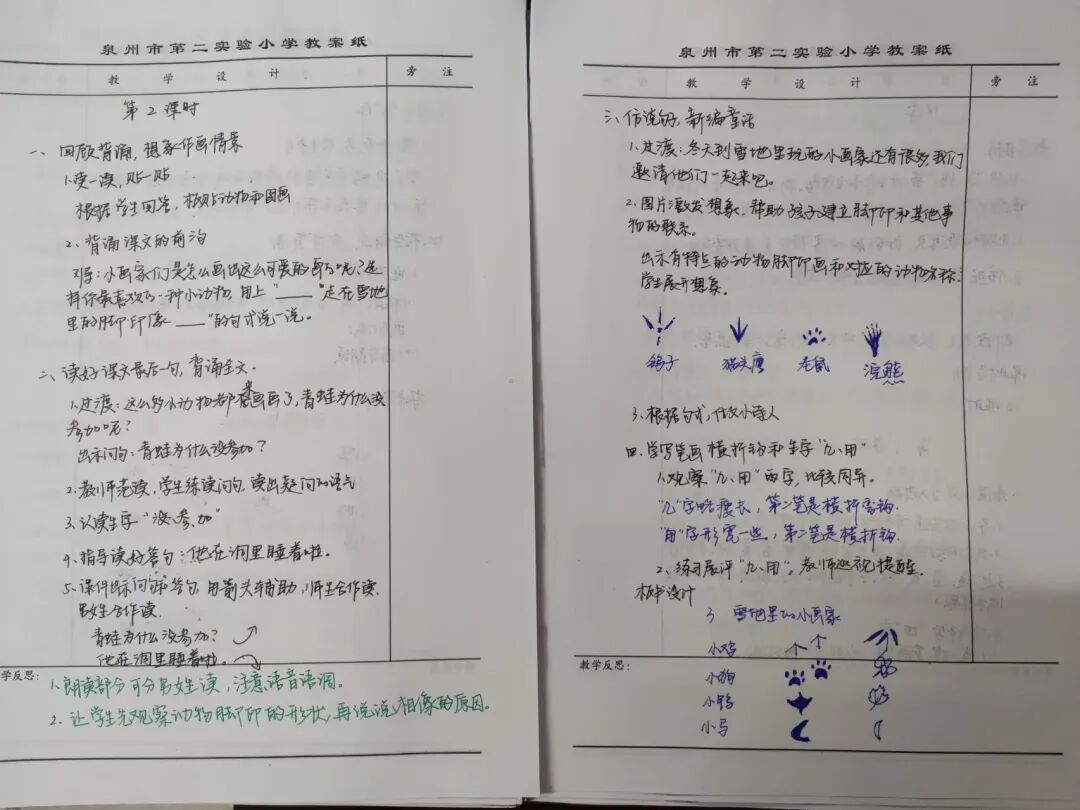 泉州市第二实验小学教案纸
教 学 设 计 旁 注
第2课时
一、回顾背诵，想象作画情景
1.读一读，贴一贴
根据学生回答，板贴动物和图画
2.背诵课文的前沿
引导：小画家们是怎么画出这么可爱的画了呢？选
择你最喜欢的一种小动物，用上“____走在雪地
里的脚印像____”的句式说一说。
二、读好课文最后一句，背诵全文.
1.过渡：这么多小动物都来画画了，青蛙为什么没
参加呢？
出示问句：青蛙为什么没参加？
2.教师范读，学生练读问句，读出疑问的语气
3.认读生字“没、参、加”
4.指导读好答句：他在洞里睡着啦。
5.课件出示问句和答句，用箭头辅助，师生合作读.
男女生合作读.
青蛙为什么没参加？
他在洞里睡着啦。
学反思：
1.朗读部分可分男女生读，注意语音语调。
2.让学生先观察动物脚印的形状，再说说相像的原因。
泉州市第二实验小学教案纸
教 学 设 计 旁 注
三、仿说句，新编童话
1.过渡：冬天到雪地里玩的小画家还有很多，我们
邀请他们一起来吧。
2.图片激发想象，帮助孩子建立脚印和其他事
物的联系。
出示有特点的动物脚印画和对应的动物名称.
学生展开想象。
鸽子 猫头鹰 老鼠 浣熊
3.根据句式，做小诗人
四、学写笔画横折钩和生字“几、用”
1.观察“几、用”两字，比较同异.
“几”字略瘦长，第二笔是横折弯钩.
“用”字形宽一些，第二笔是横折钩.
2.练习展评“几、用”，教师巡视提醒.
板书设计
3 雪地里的小画家
小鸡
教学反思：
小狗
小鸭
小马